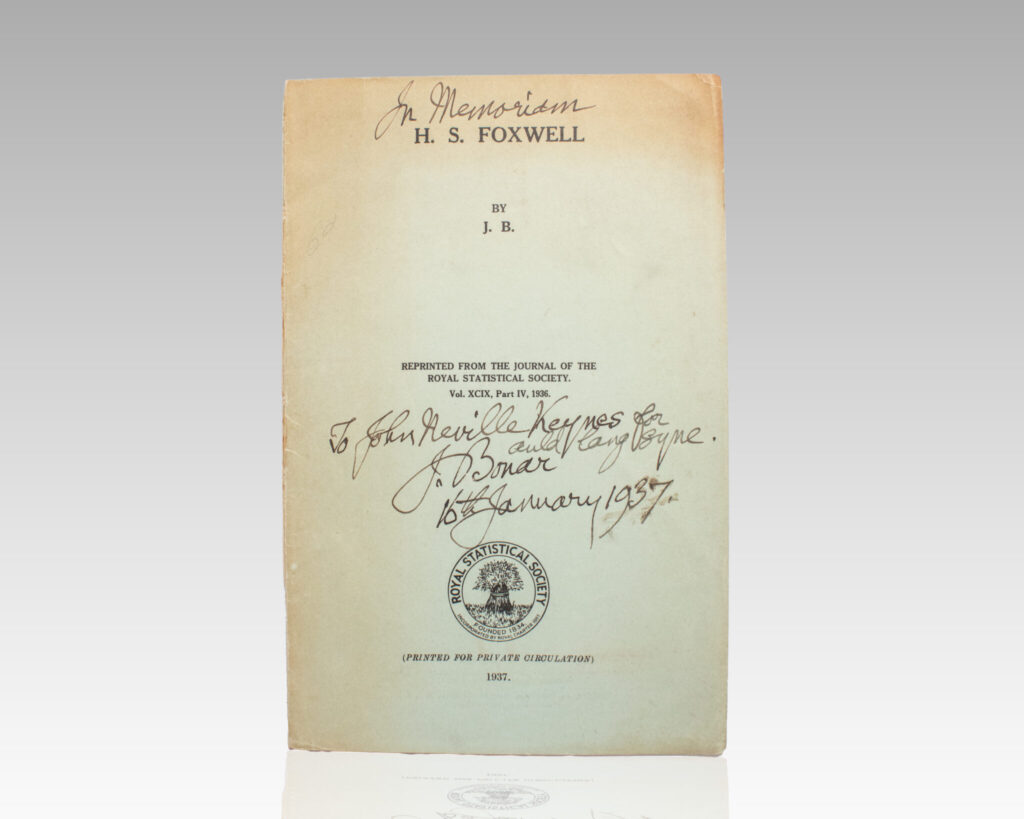 In Memoriam
H. S. FOXWELL
BY
J. B.
REPRINTED FROM THE JOURNAL OF THE
ROYAL STATISTICAL SOCIETY.
Vol. XCIX, Part IV, 1936.
To John Neville Keynes for
auld lang syne.
J. Bonar
16th January 1937.
ROYAL STATISTICAL SOCIETY
FOUNDED 1834
INCORPORATED BY ROYAL CHARTER 1887
(PRINTED FOR PRIVATE CIRCULATION)
1937.